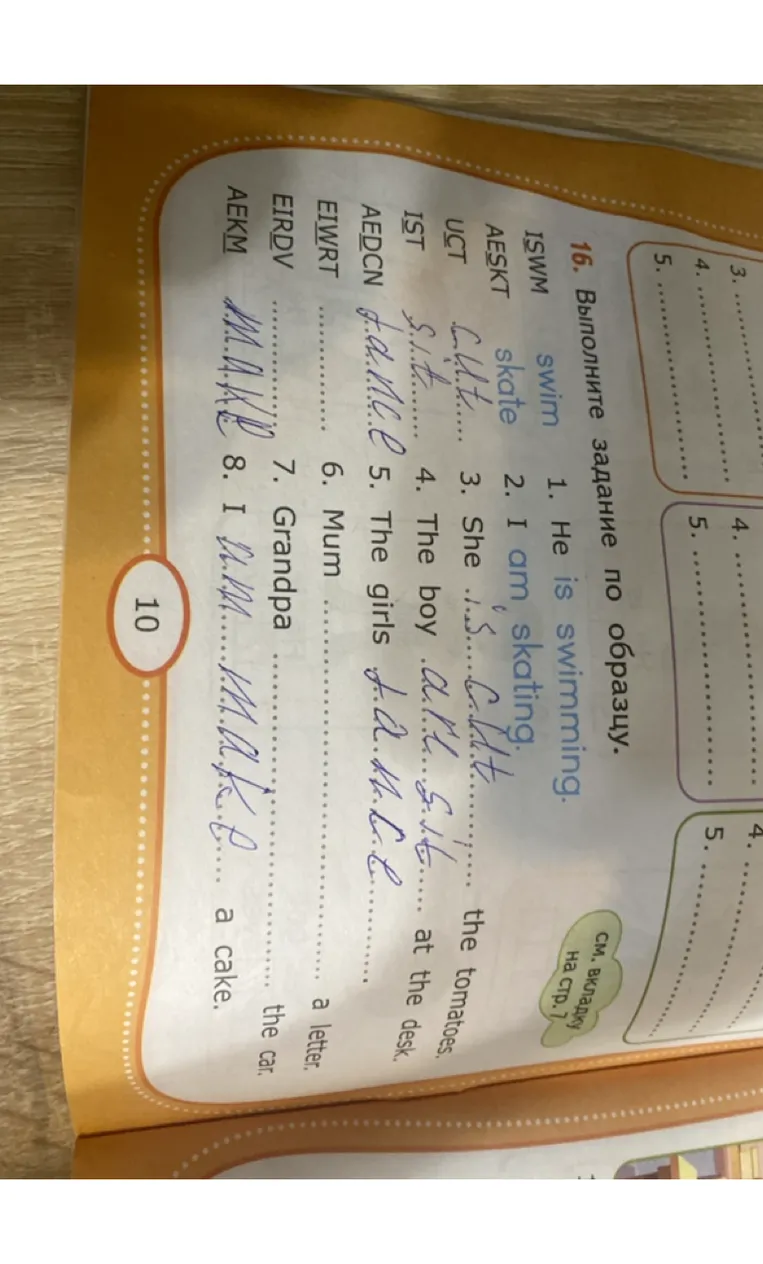 3. ....................
4. ....................
5. ....................
4. ....................
5. ....................
4. ....................
5. ....................
16. Выполните задание по образцу.
см. вкладку
на стр. 7
ISWM swim 1. He is swimming.
AESKT skate 2. I am skating.
UCT cut 3. She is cut the tomatoes.
IST sit 4. The boy are sit at the desk.
AEDCN dance 5. The girls dance
EIWRT .................... 6. Mum .................... a letter.
EIRDV .................... 7. Grandpa .................... the car.
AEKM make 8. I am make a cake.
10